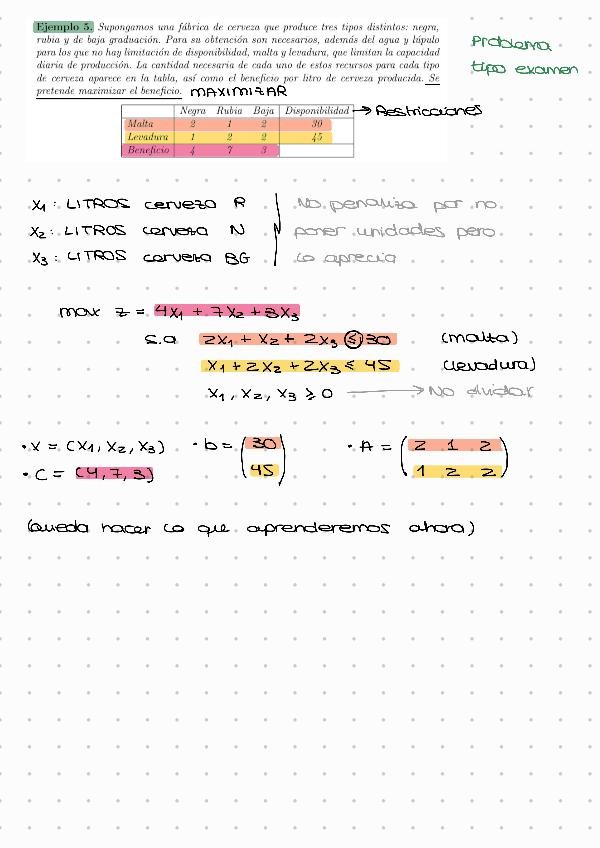 Ejemplo 5. Supongamos una fábrica de cerveza que produce tres tipos distintos: negra,
rubia y de baja graduación. Para su obtención son necesarios, además del agua y lúpulo
para los que no hay limitación de disponibilidad, malta y levadura, que limitan la capacidad
diaria de producción. La cantidad necesaria de cada uno de estos recursos para cada tipo
de cerveza aparece en la tabla, así como el beneficio por litro de cerveza producida. Se
pretende maximizar el beneficio. MAXIMIZAR
Problema
tipo examen
Negra Rubia Baja Disponibilidad → Restricciones
Malta 2 1 2 30
Levadura 1 2 2 45
Beneficio 4 7 3
X1: LITROS cerveza R
X2: LITROS cerveza N
X3: LITROS cerveza BG
No penaliza por no
poner unidades pero
lo aprecia
max z = 4X1 + 7X2 + 3X3
s.a 2X1 + X2 + 2X3 ≤ 30 (malta)
X1 + 2X2 + 2X3 ≤ 45 (levadura)
X1, X2, X3 ≥ 0 → No olvidar
• X = (X1, X2, X3) • b = (30 45) • A = (2 1 2
• C = (4, 7, 3) 1 2 2)
(queda hacer lo que aprenderemos ahora)